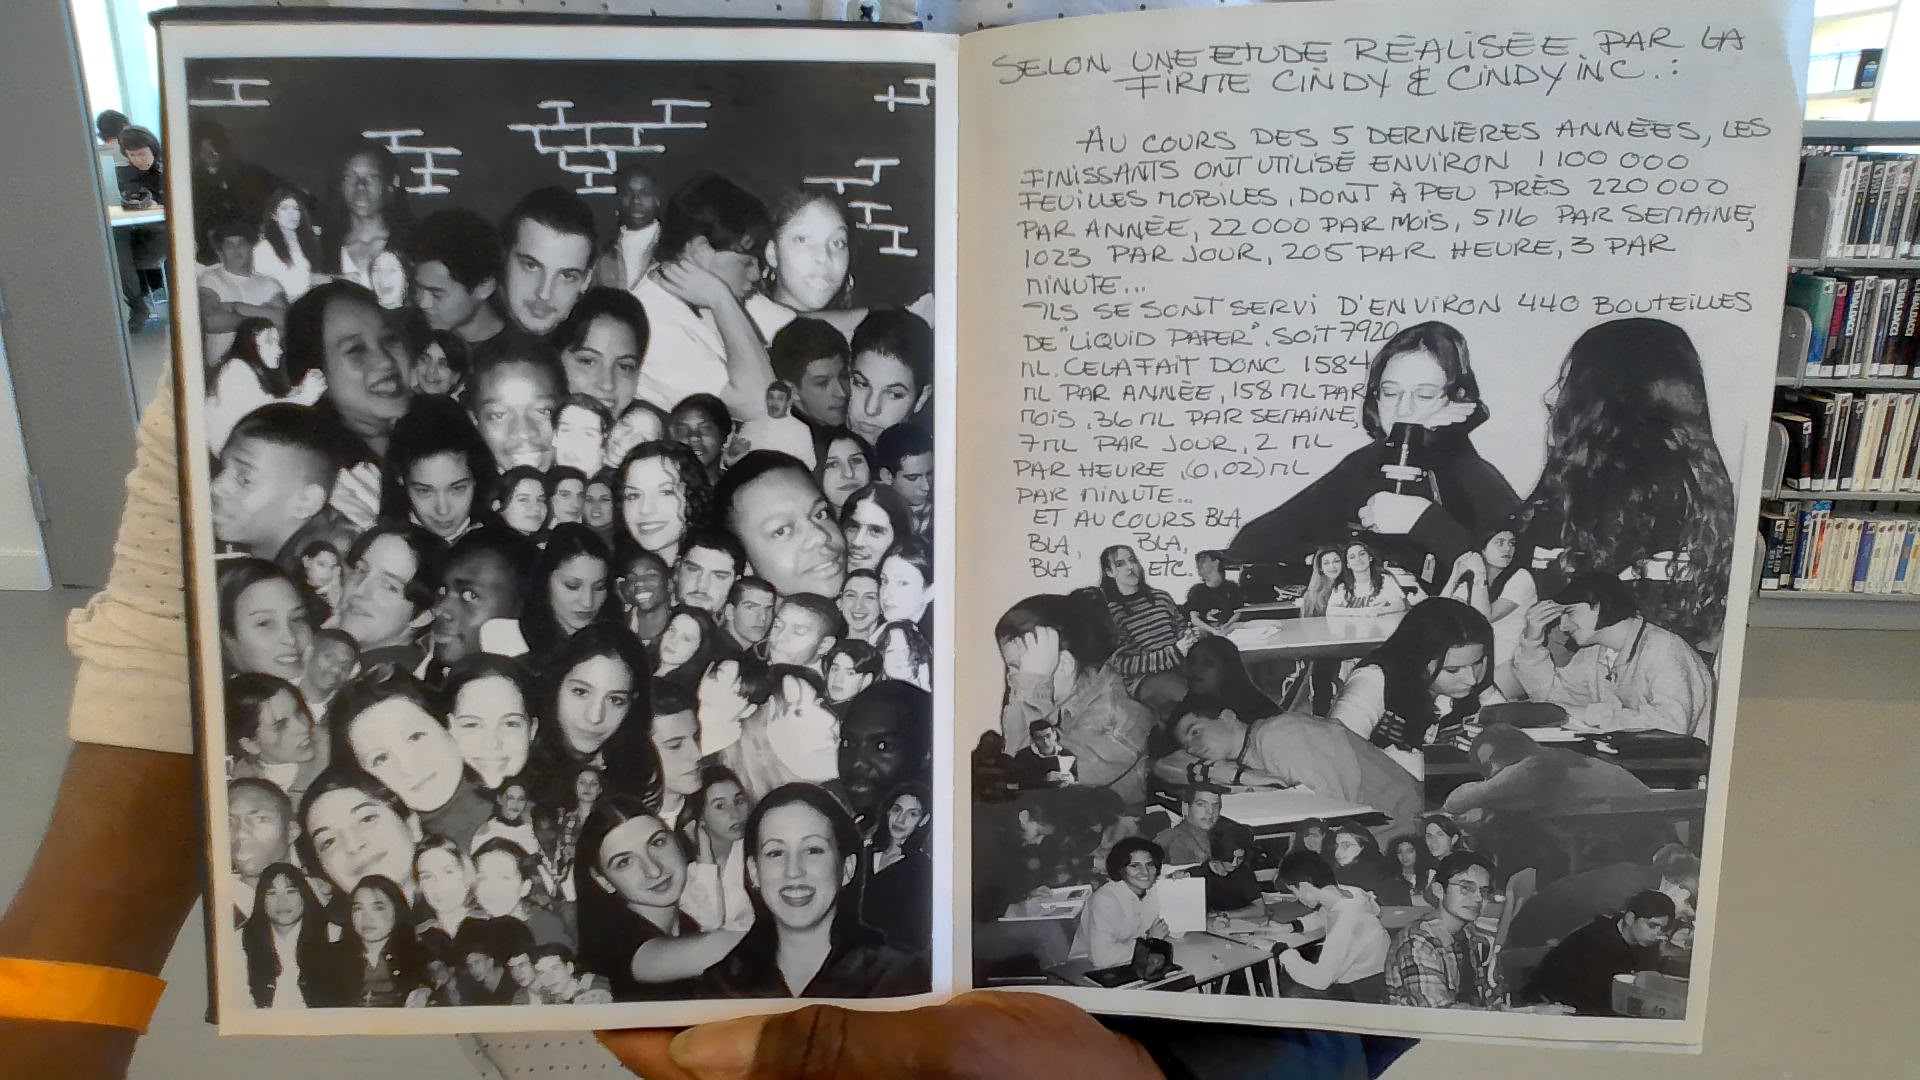 SELON UNE ETUDE RÉALISÉE PAR LA
FIRME CINDY & CINDY INC. :
AU COURS DES 5 DERNIÈRES ANNÉES, LES
FINISSANTS ONT UTILISÉ ENVIRON 1 100 000
FEUILLES MOBILES, DONT À PEU PRÈS 220 000
PAR ANNÉE, 22 000 PAR MOIS, 5116 PAR SEMAINE,
1023 PAR JOUR, 205 PAR HEURE, 3 PAR
MINUTE...
ILS SE SONT SERVI D'ENVIRON 440 BOUTEILLES
DE "LIQUID PAPER", SOIT 7920
ML. CELA FAIT DONC 1584
ML PAR ANNÉE, 158 ML PAR
MOIS, 36 ML PAR SEMAINE,
7 ML PAR JOUR, 2 ML
PAR HEURE, (0,02) ML
PAR MINUTE...
ET AU COURS BLA
BLA, BLA,
BLA ETC.